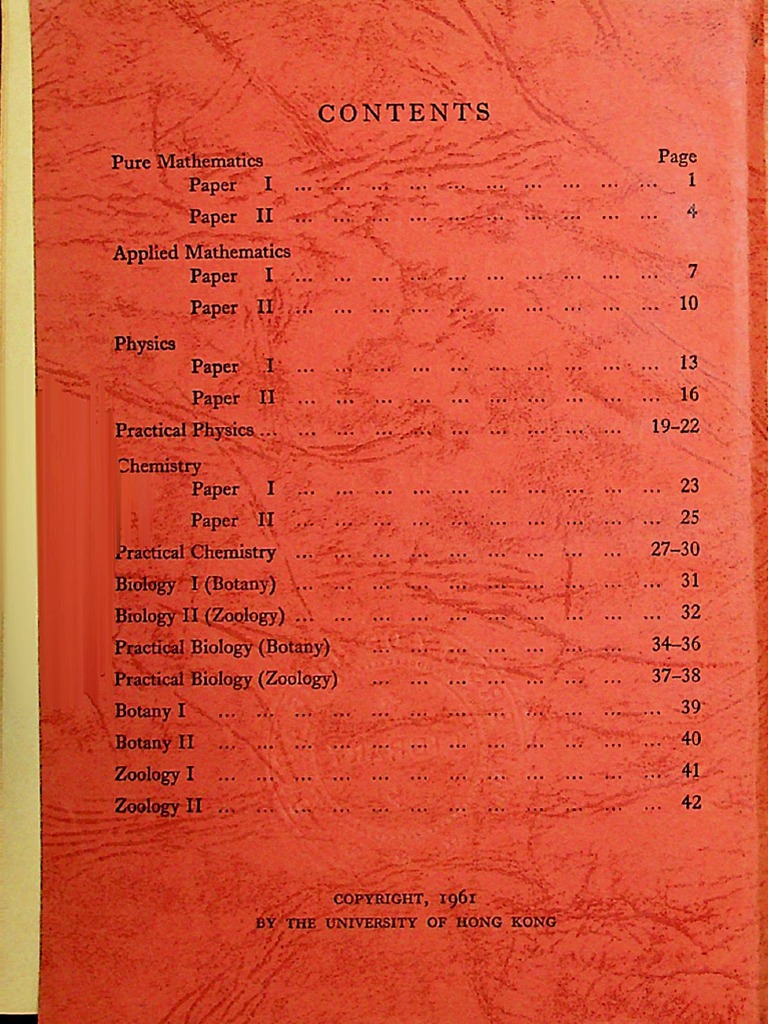 CONTENTS
Page
Pure Mathematics
Paper I ... ... ... ... ... ... ... ... ... ... 1
Paper II ... ... ... ... ... ... ... ... ... ... 4
Applied Mathematics
Paper I ... ... ... ... ... ... ... ... ... ... 7
Paper II ... ... ... ... ... ... ... ... ... ... 10
Physics
Paper I ... ... ... ... ... ... ... ... ... ... 13
Paper II ... ... ... ... ... ... ... ... ... ... 16
Practical Physics ... ... ... ... ... ... ... ... ... ... 19–22
Chemistry
Paper I ... ... ... ... ... ... ... ... ... ... 23
Paper II ... ... ... ... ... ... ... ... ... ... 25
Practical Chemistry ... ... ... ... ... ... ... ... ... 27–30
Biology I (Botany) ... ... ... ... ... ... ... ... ... ... 31
Biology II (Zoology) ... ... ... ... ... ... ... ... ... ... 32
Practical Biology (Botany) ... ... ... ... ... ... ... 34–36
Practical Biology (Zoology) ... ... ... ... ... ... ... 37–38
Botany I ... ... ... ... ... ... ... ... ... ... ... ... 39
Botany II ... ... ... ... ... ... ... ... ... ... ... ... 40
Zoology I ... ... ... ... ... ... ... ... ... ... ... ... 41
Zoology II ... ... ... ... ... ... ... ... ... ... ... ... 42
COPYRIGHT, 1961
BY THE UNIVERSITY OF HONG KONG